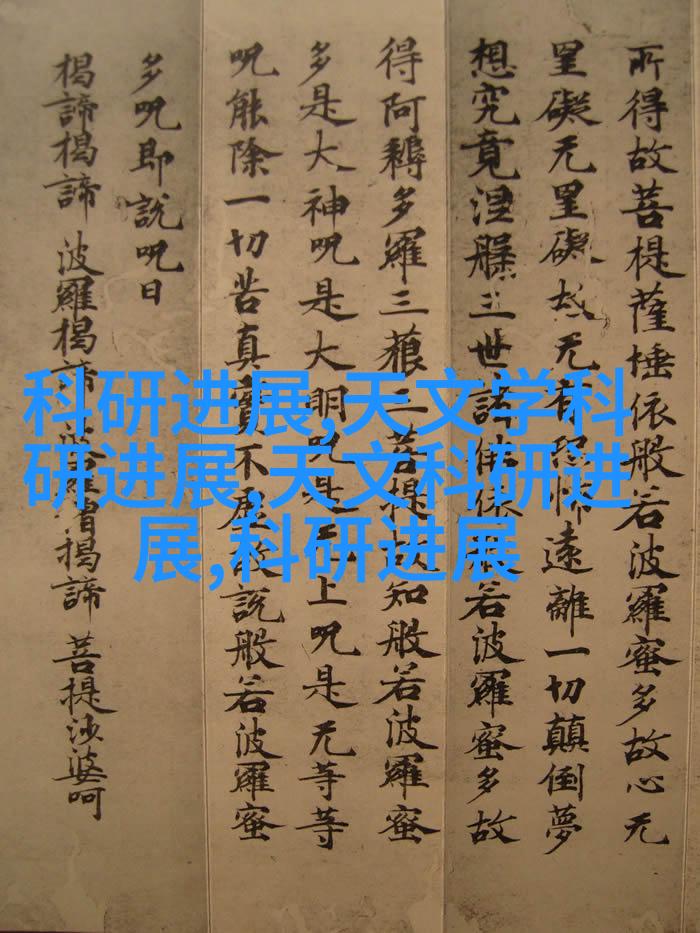 所得故菩提薩埵依般若波羅蜜多故心无
罣礙无罣礙故无有恐怖遠離一切顛倒夢
想究竟涅槃三世諸佛依若波羅蜜多故
得阿耨多羅三藐三菩提故知般若波羅蜜
多是大神呪是大明呪是无上呪是无等等
呪能除一切苦真實不虛故說般若波羅蜜
多呪即說呪曰
揭諦揭諦 波羅揭諦 羅僧揭諦 菩提沙婆呵
科研进展,天文学科
研进展,天文科研进
展,科研进展